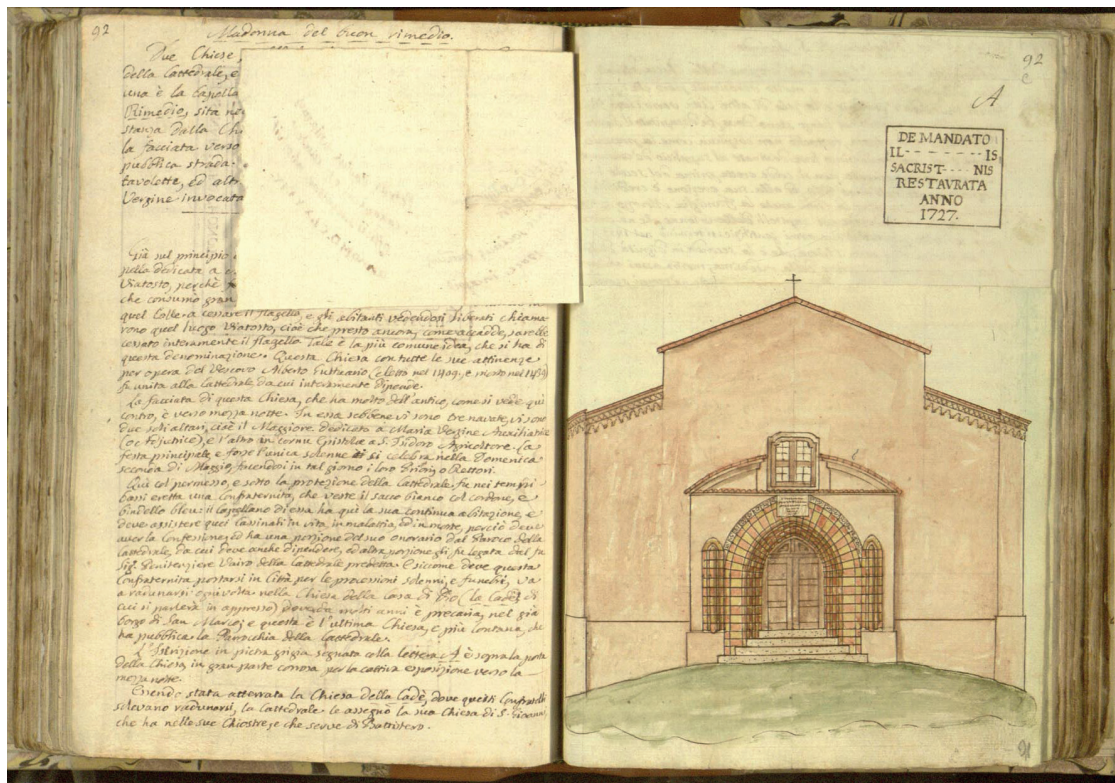 92
Madonna del buon rimedio.
Due Chiese,
della Cattedrale, e
una è la Capella
Rimedio, sita ne
stanza dalla Ch
la facciata verso
pubblica strada.
tavolette, ed alt
Vergine invocata
Già sul principio
pella dedicata a
Viatosto, perchè
che consumò gran
quel Colle a cessare il flagello, e gli abitanti vedendosi liberati chiama
rono quel luogo Viatosto, cioè che presto ancora, come accadde, sarebbe
cessato interamente il flagello. Tale è la più comune idea, che si ha di
questa denominazione. Questa Chiesa con tutte le sue attinenze
per opera del Vescovo Alberto Guttuario (eletto nel 1409, e morto nel 1439)
fu unita alla Cattedrale da cui interamente dipende.
La facciata di questa Chiesa, che ha molto dell'antico, come si vede qui
contro, è verso mezza notte. In essa sebbene vi sono tre navate, vi sono
due soli altari, cioè il Maggiore dedicato a Maria Vergine Auxiliatrice
e l'altro in cornu Epistolæ a S. Isidoro Agricoltore. La
festa principale, e forse l'unica solenne si celebra nella Domenica
seconda di Maggio, facendosi in tal giorno i loro Priori, o Rettori.
Qui col permesso, e sotto la protezione della Cattedrale fu nei tempi
bassi eretta una Confraternita, che veste il sacco bianco col cordone, e
bindello bleu: il Capellano di essa ha qui la sua continua abitazione, e
deve assistere quei Cassinati in vita, in malattia, ed in morte, perciò deve
aver la Confessione, ed ha una porzione del suo onorario dal Paroco della
Cattedrale, da cui deve anche dipendere, ed altra porzione gli fu legata dal fu
Sig. Penitenziere della Cattedrale predetta. E siccome deve questa
Confraternita portarsi in Città per le processioni solenni, e funebri, va
a radunarsi ogni volta nella Chiesa della casa di Dio (la Cadè, di
cui si parlerà in appresso) dove da molti anni è precaria, nel già
borgo di San Marco; e questa è l'ultima Chiesa, e più lontana, che
ha pubblica la Parrocchia della Cattedrale.
L'Iscrizione in pietra grigia segnata colla lettera A è sopra la porta
della Chiesa, in gran parte corrosa per la cattiva esposizione verso la
mezza notte.
Essendo stata atterrata la Chiesa della Cadè, dove questi Confratelli
solevano radunarsi, la Cattedrale le assegnò la sua Chiesa di S. Giovanni,
che ha nelle sue Chiostre, e che serve di Battistero.
92
A
DE MANDATO
IL - - - - - - - IS
SACRIST - - - - NIS
RESTAVRATA
ANNO
1727.